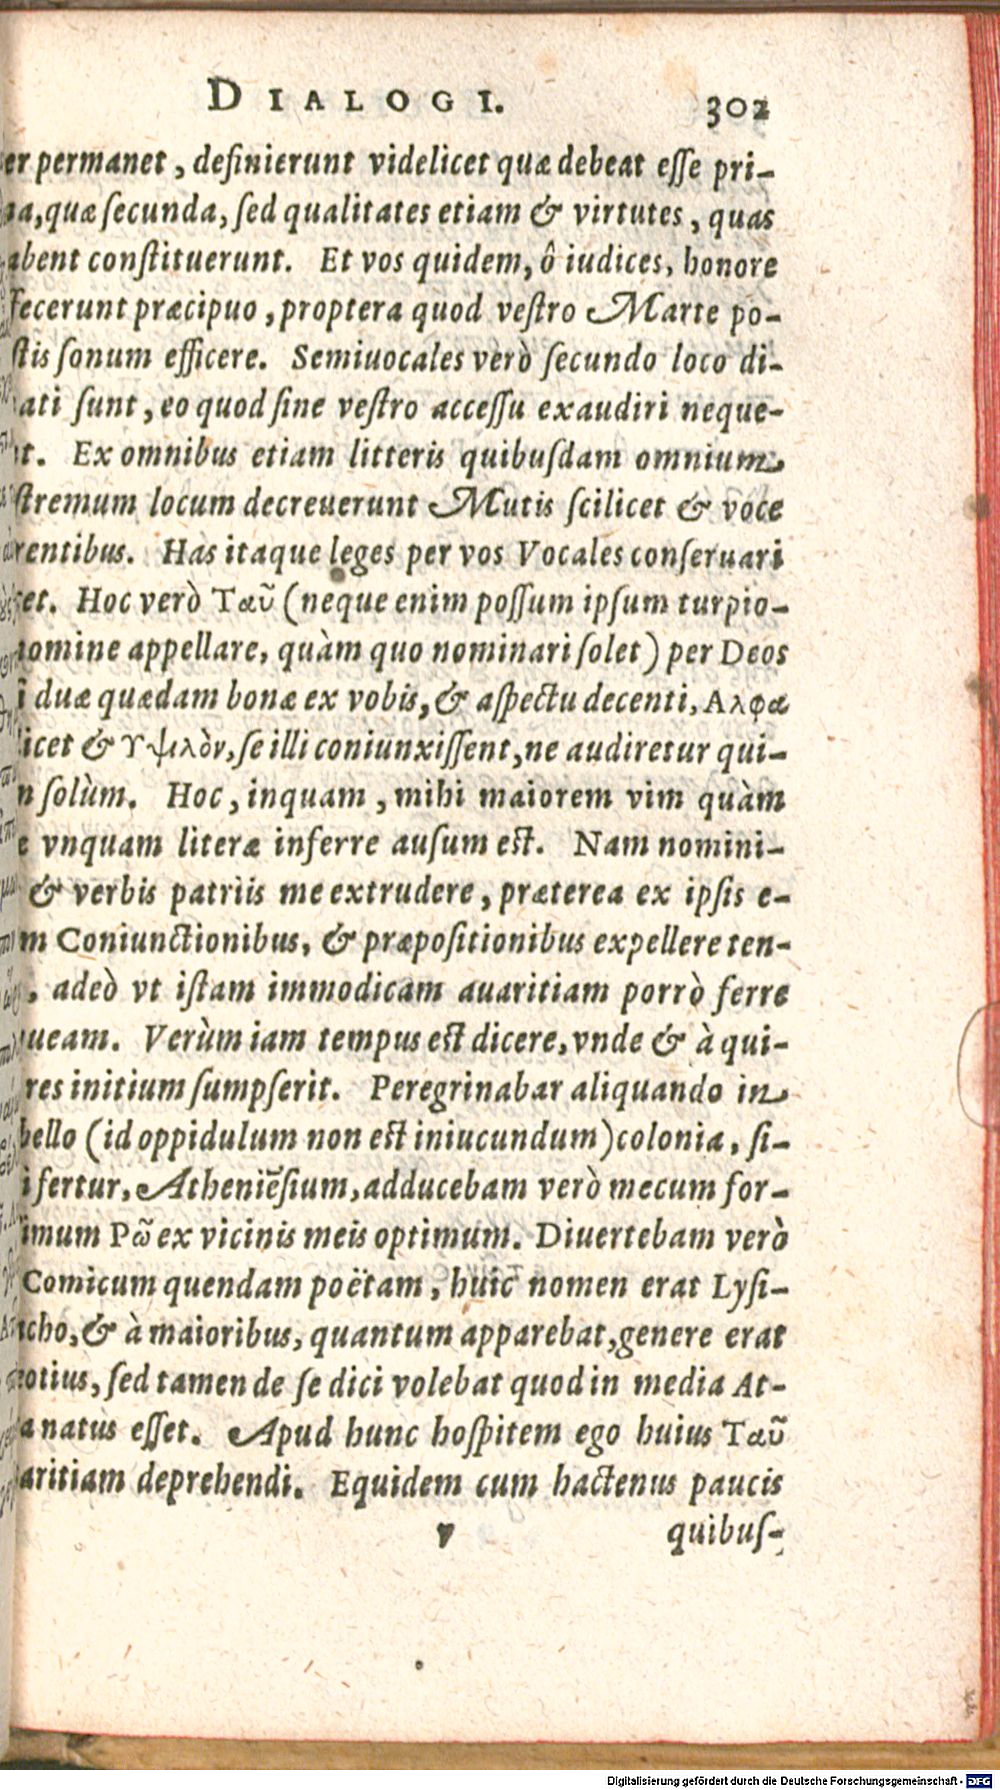 DIALOGI. 302
er permanet, definierunt videlicet quæ debeat esse pri-
a, quæ secunda, sed qualitates etiam & virtutes, quas
abent constituerunt. Et vos quidem, ô iudices, honore
fecerunt præcipuo, proptera quod vestro Marte po-
stis sonum efficere. Semiuocales verò secundo loco di-
ati sunt, eo quod sine vestro accessu exaudiri neque-
t. Ex omnibus etiam litteris quibusdam omnium
stremum locum decreuerunt Mutis scilicet & voce
rentibus. Has itaque leges per vos Vocales conseruari
et. Hoc verò Ταῦ (neque enim possum ipsum turpio-
nomine appellare, quàm quo nominari solet) per Deos
i duæ quædam bonæ ex vobis, & aspectu decenti, Αλφα
licet & Υψιλὸν, se illi coniunxissent, ne audiretur qui-
n solùm. Hoc, inquam, mihi maiorem vim quàm
e vnquam literæ inferre ausum est. Nam nomini-
& verbis patriis me extrudere, præterea ex ipsis e-
m Coniunctionibus, & præpositionibus expellere ten-
, adeò vt istam immodicam auaritiam porrò ferre
ueam. Verùm iam tempus est dicere, vnde & à qui-
res initium sumpserit. Peregrinabar aliquando in
bello (id oppidulum non est iniucundum) colonia, si-
i fertur, Atheniēsium, adducebam verò mecum for-
imum Ρῶ ex vicinis meis optimum. Diuertebam verò
Comicum quendam poëtam, huic nomen erat Lysi-
cho, & à maioribus, quantum apparebat, genere erat
eotius, sed tamen de se dici volebat quod in media At-
a natus esset. Apud hunc hospitem ego huius Ταῦ
aritiam deprehendi. Equidem cum hactenus paucis
v quibus-
Digitalisierung gefördert durch die Deutsche Forschungsgemeinschaft - DFG